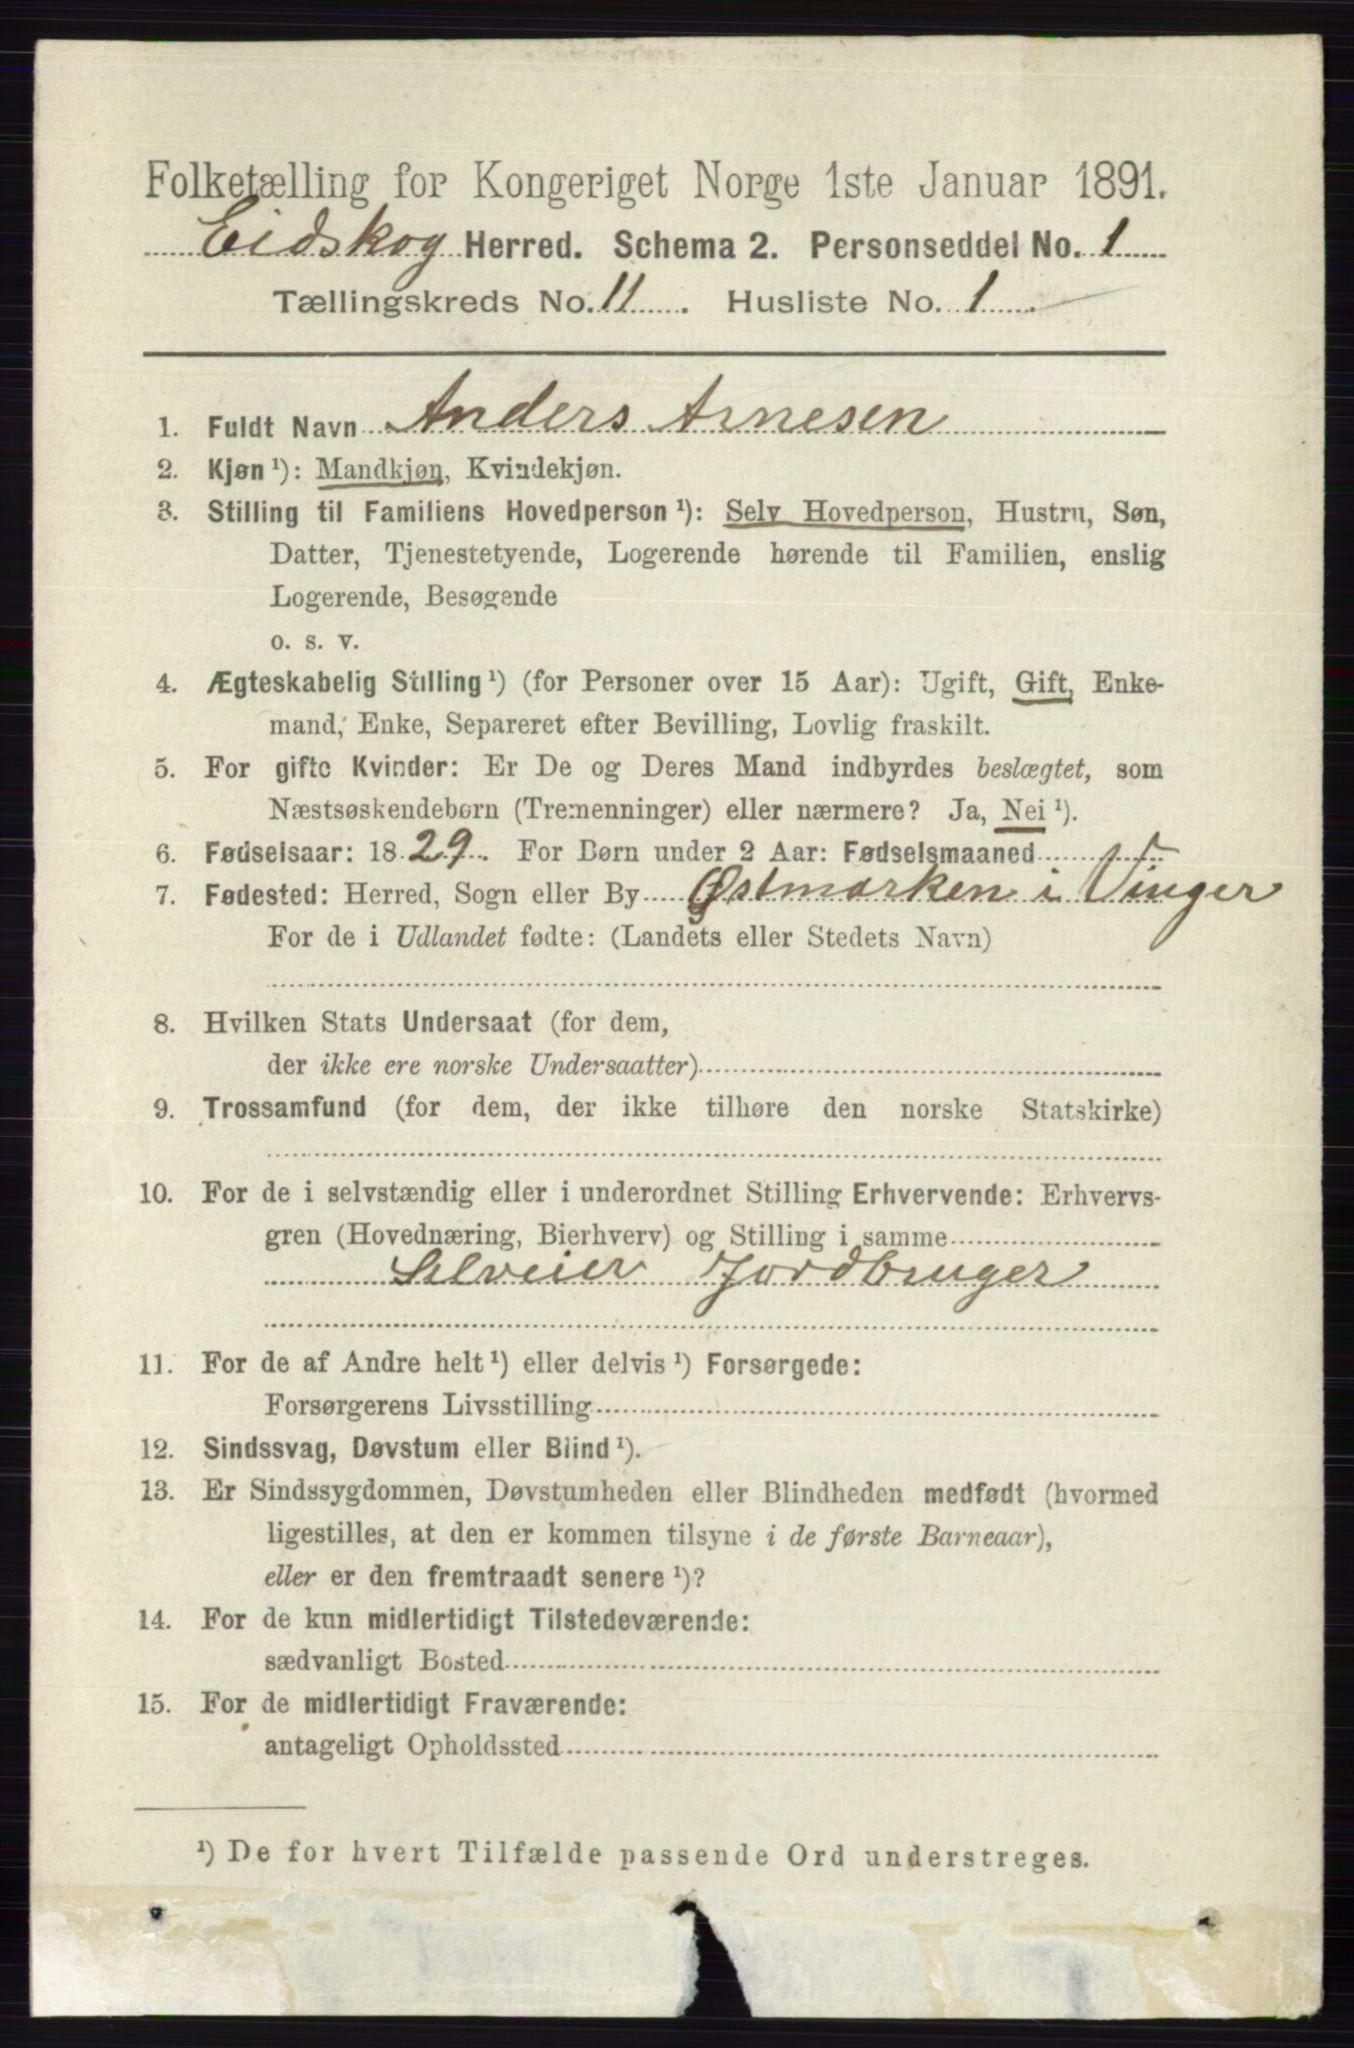 Folketælling for Kongeriget Norge 1ste Januar 1891.
Eidskog Herred. Schema 2. Personseddel No. 1
Tællingskreds No. 11. Husliste No. 1
1. Fuldt Navn Anders Arnesen
2. Kjøn ¹): Mandkjøn, Kvindekjøn.
3. Stilling til Familiens Hovedperson ¹): Selv Hovedperson, Hustru, Søn,
Datter, Tjenestetyende, Logerende hørende til Familien, enslig
Logerende, Besøgende
o. s. v.
4. Ægteskabelig Stilling ¹) (for Personer over 15 Aar): Ugift, Gift, Enke-
mand, Enke, Separeret efter Bevilling, Lovlig fraskilt.
5. For gifte Kvinder: Er De og Deres Mand indbyrdes beslægtet, som
Næstsøskendebørn (Tremenninger) eller nærmere? Ja, Nei ¹).
6. Fødselsaar: 1829. For Børn under 2 Aar: Fødselsmaaned
7. Fødested: Herred, Sogn eller By Østmarken i Vinger
For de i Udlandet fødte: (Landets eller Stedets Navn)
8. Hvilken Stats Undersaat (for dem,
der ikke ere norske Undersaatter)
9. Trossamfund (for dem, der ikke tilhøre den norske Statskirke)
10. For de i selvstændig eller i underordnet Stilling Erhvervende: Erhvervs-
gren (Hovednæring, Bierhverv) og Stilling i samme
Selveier Jordbruger
11. For de af Andre helt ¹) eller delvis ¹) Forsørgede:
Forsørgerens Livsstilling
12. Sindssvag, Døvstum eller Blind ¹).
13. Er Sindssygdommen, Døvstumheden eller Blindheden medfødt (hvormed
ligestilles, at den er kommen tilsyne i de første Barneaar),
eller er den fremtraadt senere ¹)?
14. For de kun midlertidigt Tilstedeværende:
sædvanligt Bosted
15. For de midlertidigt Fraværende:
antageligt Opholdssted
¹) De for hvert Tilfælde passende Ord understreges.